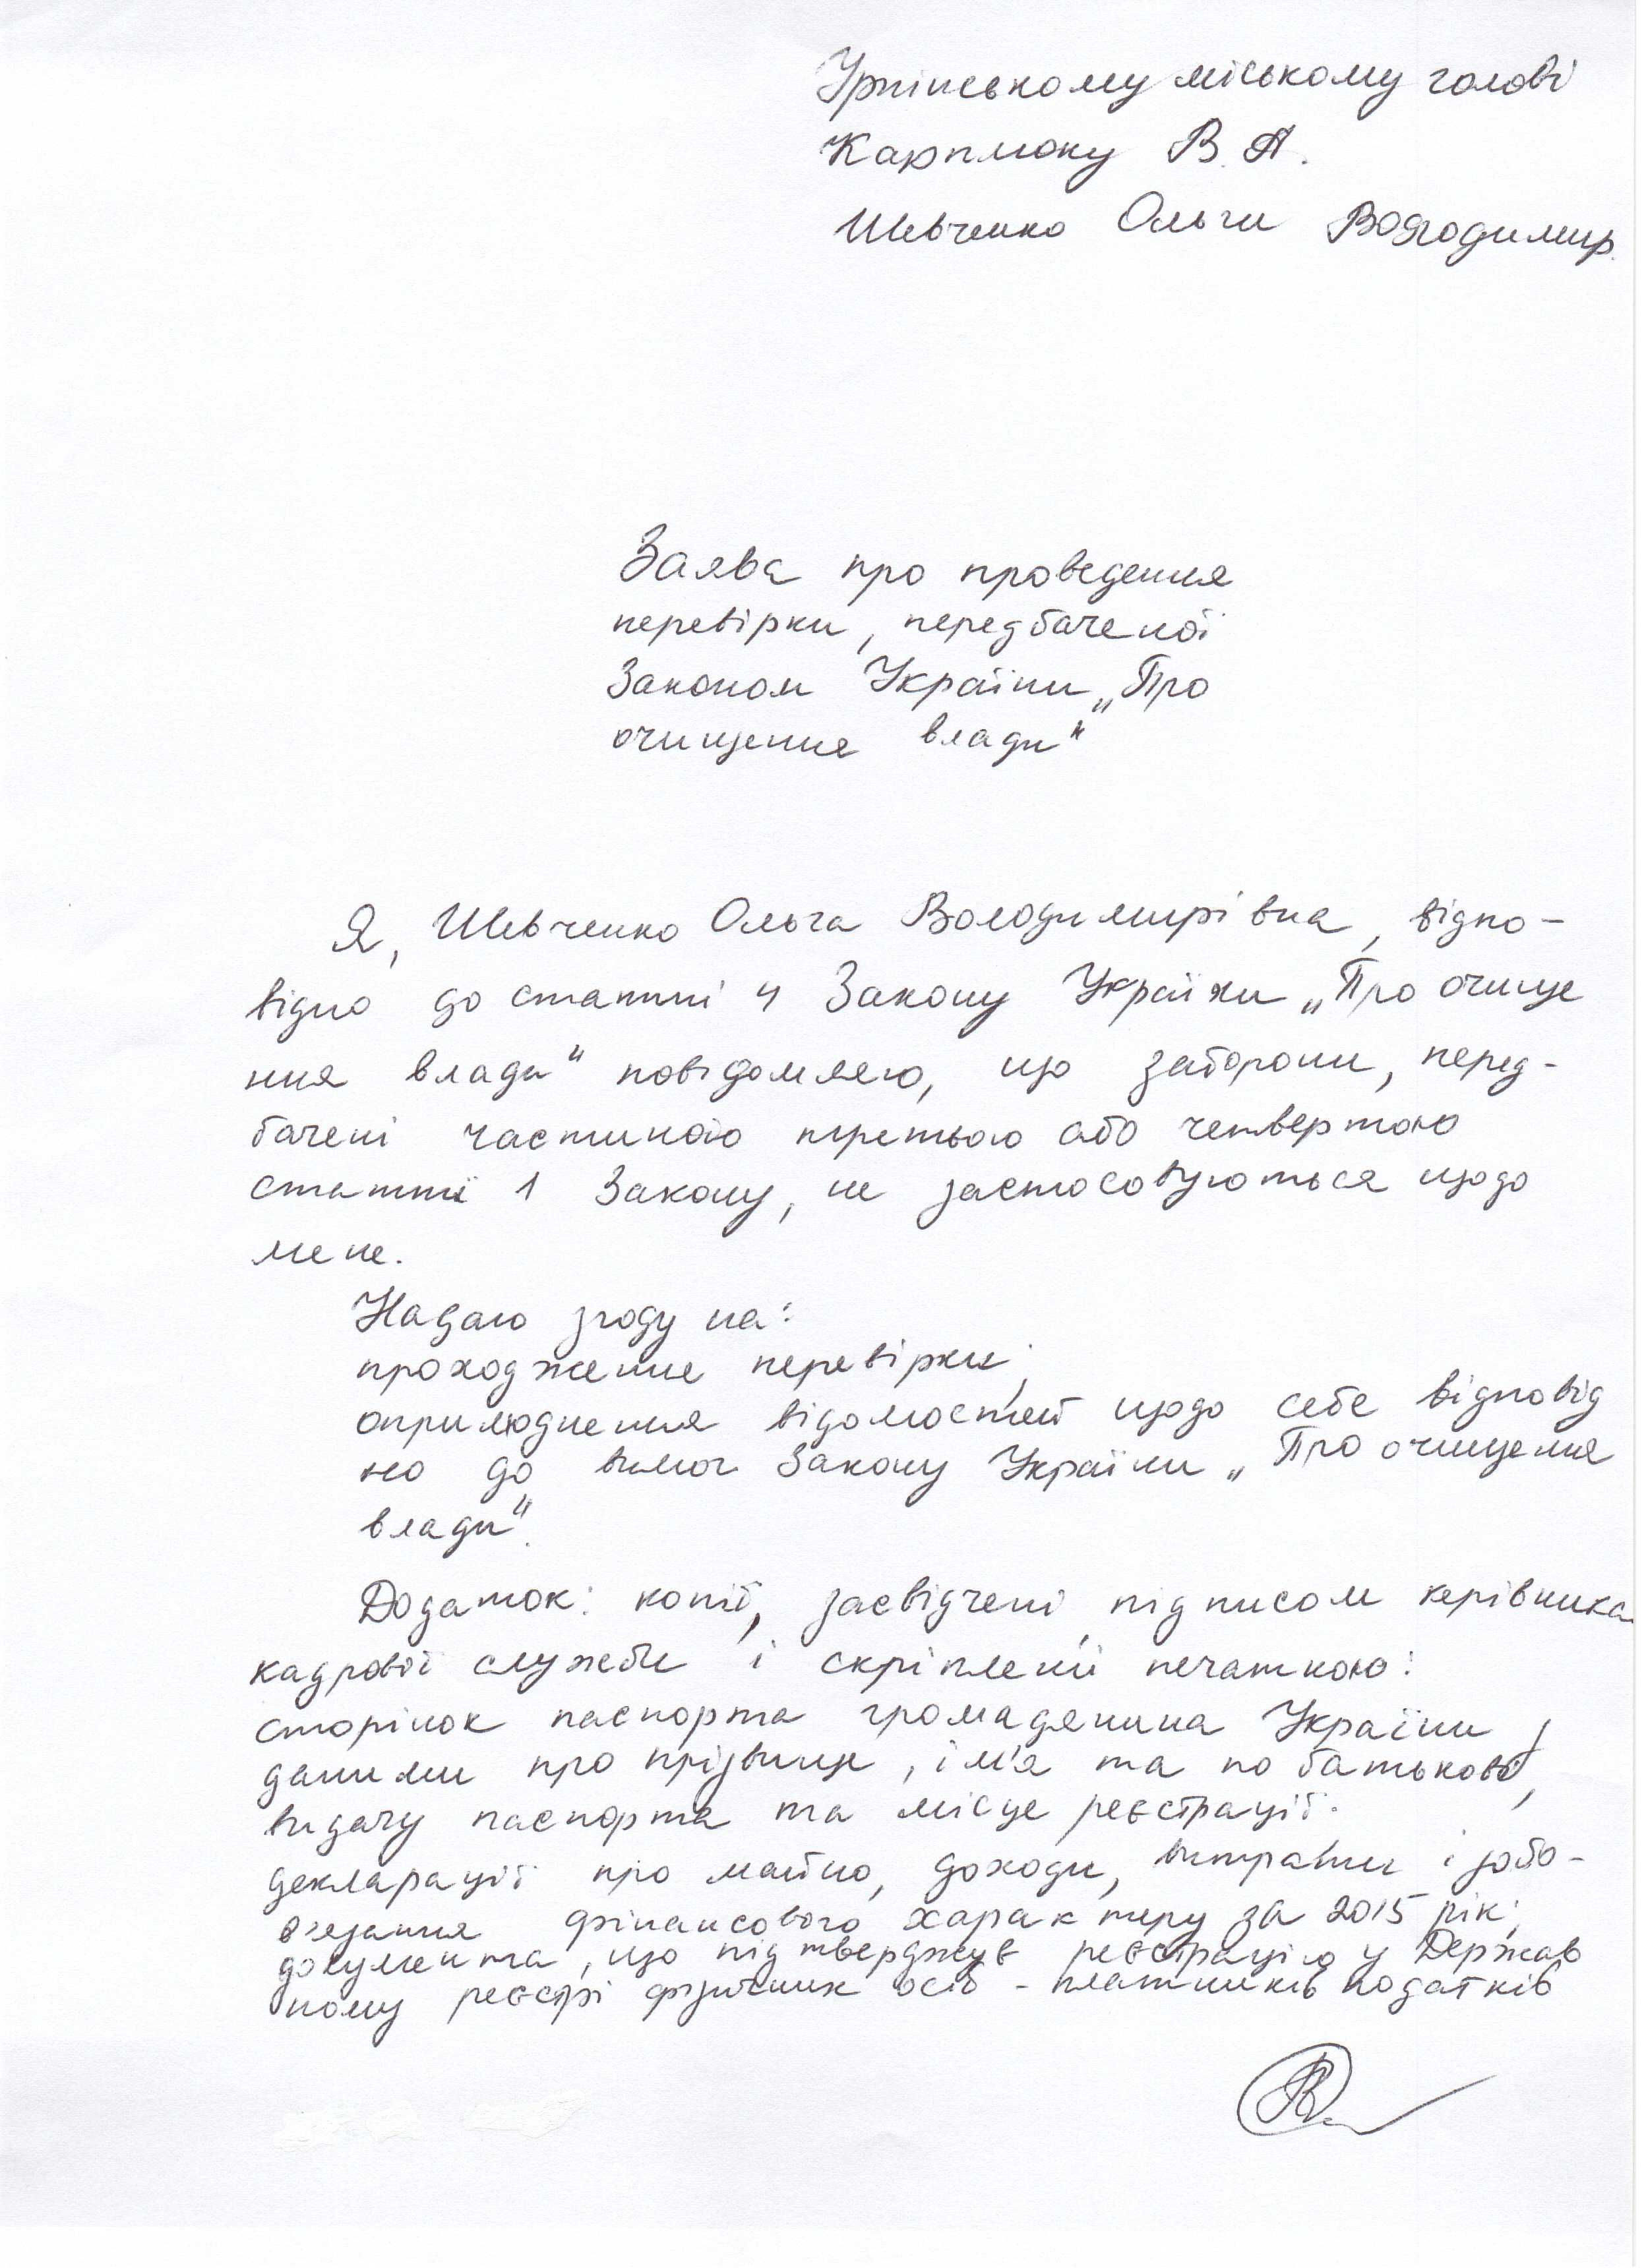 Ірпінському міському голові
Карплюку В.А.
Шевченко Ольги Володимир.
Заява про проведення
перевірки, передбаченої
Законом України „Про
очищення влади"
Я, Шевченко Ольга Володимирівна, відпо-
відно до статті 4 Закону України „Про очище
ння влади" повідомляю, що заборони, перед-
бачені частиною третьою або четвертою
статті 1 Закону, не застосовуються щодо
мене.
Надаю згоду на:
проходження перевірки;
оприлюднення відомостей щодо себе відповід
но до вимог Закону України „Про очищення
влади".
Додаток: копії, засвідчені підписом керівника
кадрової служби і скріплені печаткою:
сторінок паспорта громадянина України
даними про прізвище, ім'я та по батькові,
видачу паспорта та місце реєстрації.
декларації про майно, доходи, витрати і зобо-
в'язання фінансового характеру за 2015 рік;
документа, що підтверджує реєстрацію у Держав
ному реєстрі фізичних осіб - платників податків